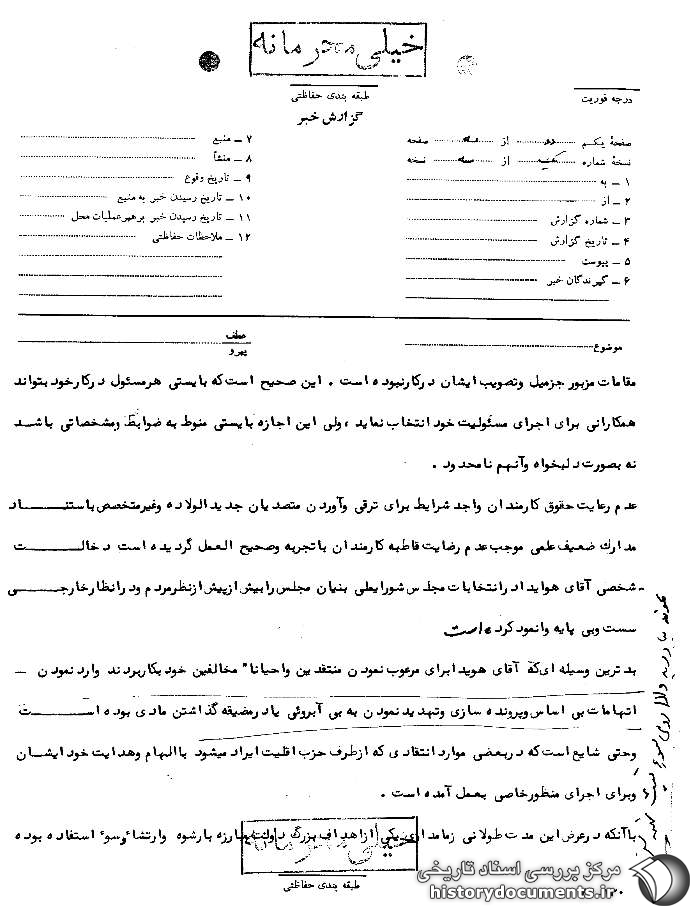 خیلی محرمانه
طبقه بندی حفاظتی
گزارش خبر
درجه فوریت
صفحهٔ یکم دو از سه صفحه
نسخهٔ شماره از سه نسخه
۱ ـ به
۲ ـ از
۳ ـ شماره گزارش
۴ ـ تاریخ گزارش
۵ ـ پیوست
۶ ـ گیرندگان خبر
۷ ـ منبع
۸ ـ منشأ
۹ ـ تاریخ وقوع
۱۰ ـ تاریخ رسیدن خبر به منبع
۱۱ ـ تاریخ رسیدن خبر برهبر عملیات محل
۱۲ ـ ملاحظات حفاظتی
موضوع
عطف
پیرو
مقامات مزبور جزمیل وتصویب ایشان درکارنبوده است . این صحیح است که بایستی هرمسئول درکارخود بتواند
همکارانی برای اجرای مسئولیت خود انتخاب نماید ، ولی این اجازه بایستی منوط به ضوابط ومشخصاتی باشد
نه بصورت دلیخواه وآنهم نامحدود .
عدم رعایت حقوق کارمندان واجد شرایط برای ترقی وآوردن متصدیان جدیدالولاده وغیرمتخصص باستناد
مدارك ضعیف علمی موجب عدم رضایت قاطبه کارمندان باتجربه وصحیح العمل گردیده است دخالت
شخصی آقای هویدا درانتخابات مجلس شورایملی بنیان مجلس رابیش ازپیش ازنظرمردم ودرانظارخارجی
سست وبی پایه وانمود کرده است
بدترین وسیله ای که آقای هویدا برای مرعوب نمودن منتقدین واحیانا" مخالفین خود بکاربردند وارد نمودن
اتهامات بی اساس وپرونده سازی وتهدید نمودن به بی آبروئی یا درمضیقه گذاشتن مادی بوده است
وحتی شایع است که دربعضی موارد انتقادی که ازطرف حزب اقلیت ایراد میشود باالهام وهدایت خود ایشان
وبرای اجرای منظورخاصی بعمل آمده است .
باآنکه درعرض این مدت طولانی زمامداری یکی ازاهداف بزرگ دولت مبارزه بارشوه وارتشاء وسوء استفاده بوده
خیلی محرمانه
طبقه بندی حفاظتی
مرکز بررسی اسناد تاریخی
historydocuments.ir